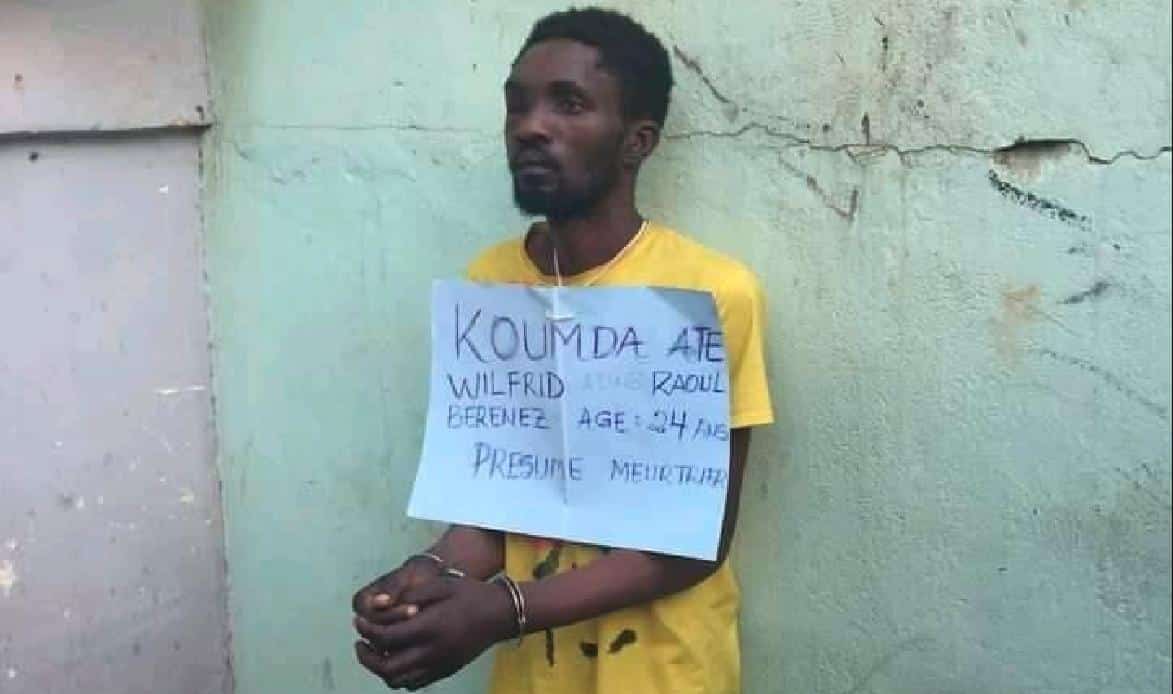 KOUMDA ATE
WILFRID RAOUL
BERENEZ AGE : 24 ANS
PRESUME MEURTRIER